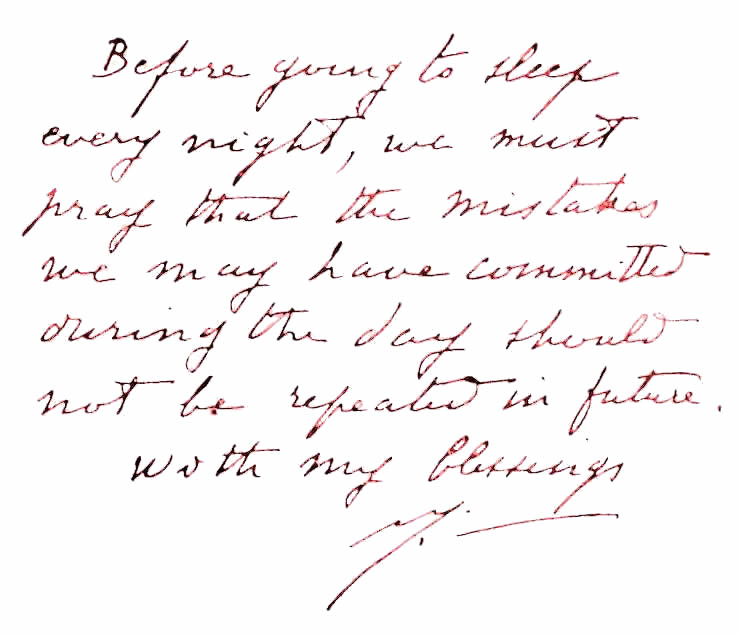 Before going to sleep
every night, we must
pray that the mistakes
we may have committed
during the day should
not be repeated in future.
With my blessings